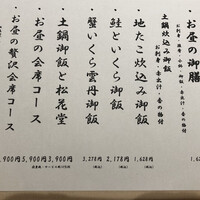 ・お昼の御膳
お刺身・温肴・小鉢・御飯・赤出汁・香の物付
1,6
土鍋炊込み御飯
お刺身・赤出汁・香の物付
・地たこ炊込み御飯
1,628円
(税込)
・鮭といくら御飯
2,178円
(税込)
・蟹いくら雲丹御飯
3,278円
(税込)
・土鍋御飯と松花堂
3,900円
・お昼の会席コース
5,900円
・お昼の贅沢会席コース
,900円